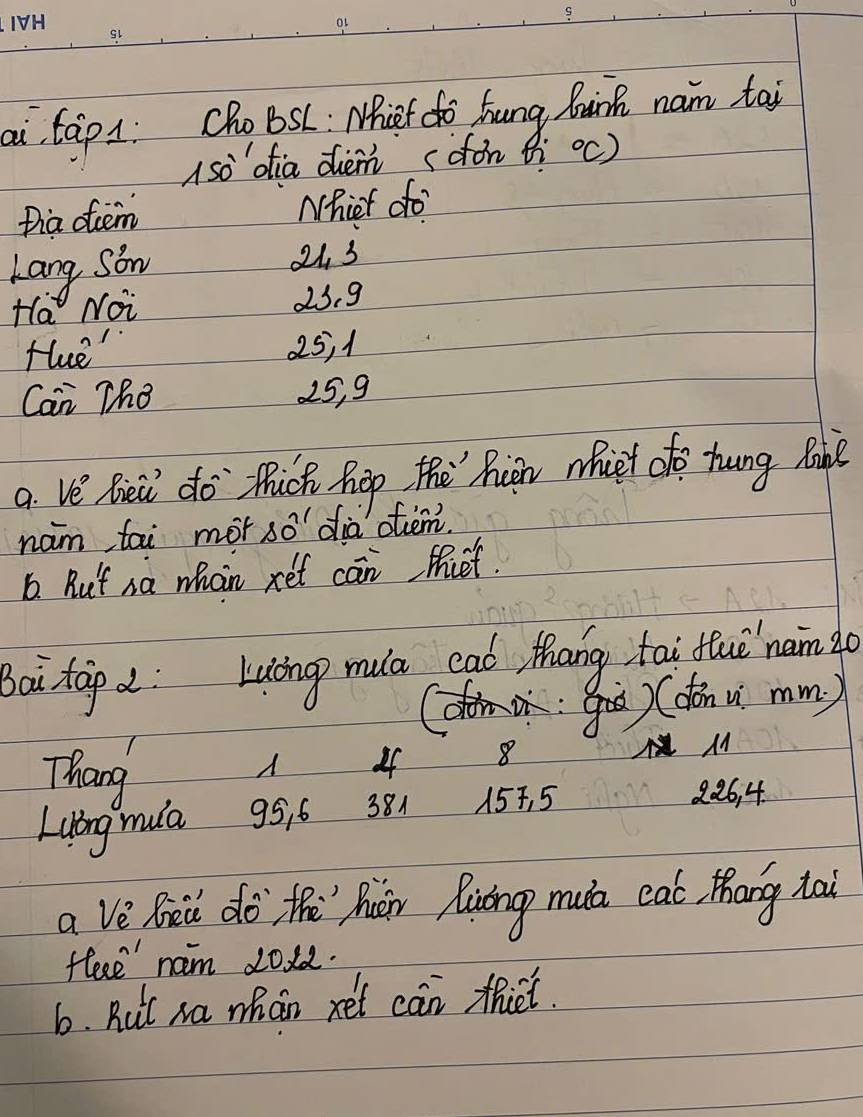 HAI
15 10 5 0
ài tập 1: Cho BSL: Nhiệt độ trung bình năm tại
1 số địa điểm (đơn vị °C)
Địa điểm Nhiệt độ
Lạng Sơn 21,3
Hà Nội 23,9
Huế 25,1
Cần Thơ 25,9
a. Vẽ biểu đồ thích hợp thể hiện nhiệt độ trung bình
năm tại một số địa điểm.
b. Rút ra nhận xét cần thiết.
Bài tập 2: Lượng mưa các tháng tại Huế năm 20
(đơn vị: giờ) (đơn vị mm.)
Tháng 1 4 8 12 11
Lượng mưa 95,6 381 157,5 226,4
a Vẽ biểu đồ thể hiện lượng mưa các tháng tại
Huế năm 2022.
b. Rút ra nhận xét cần thiết.